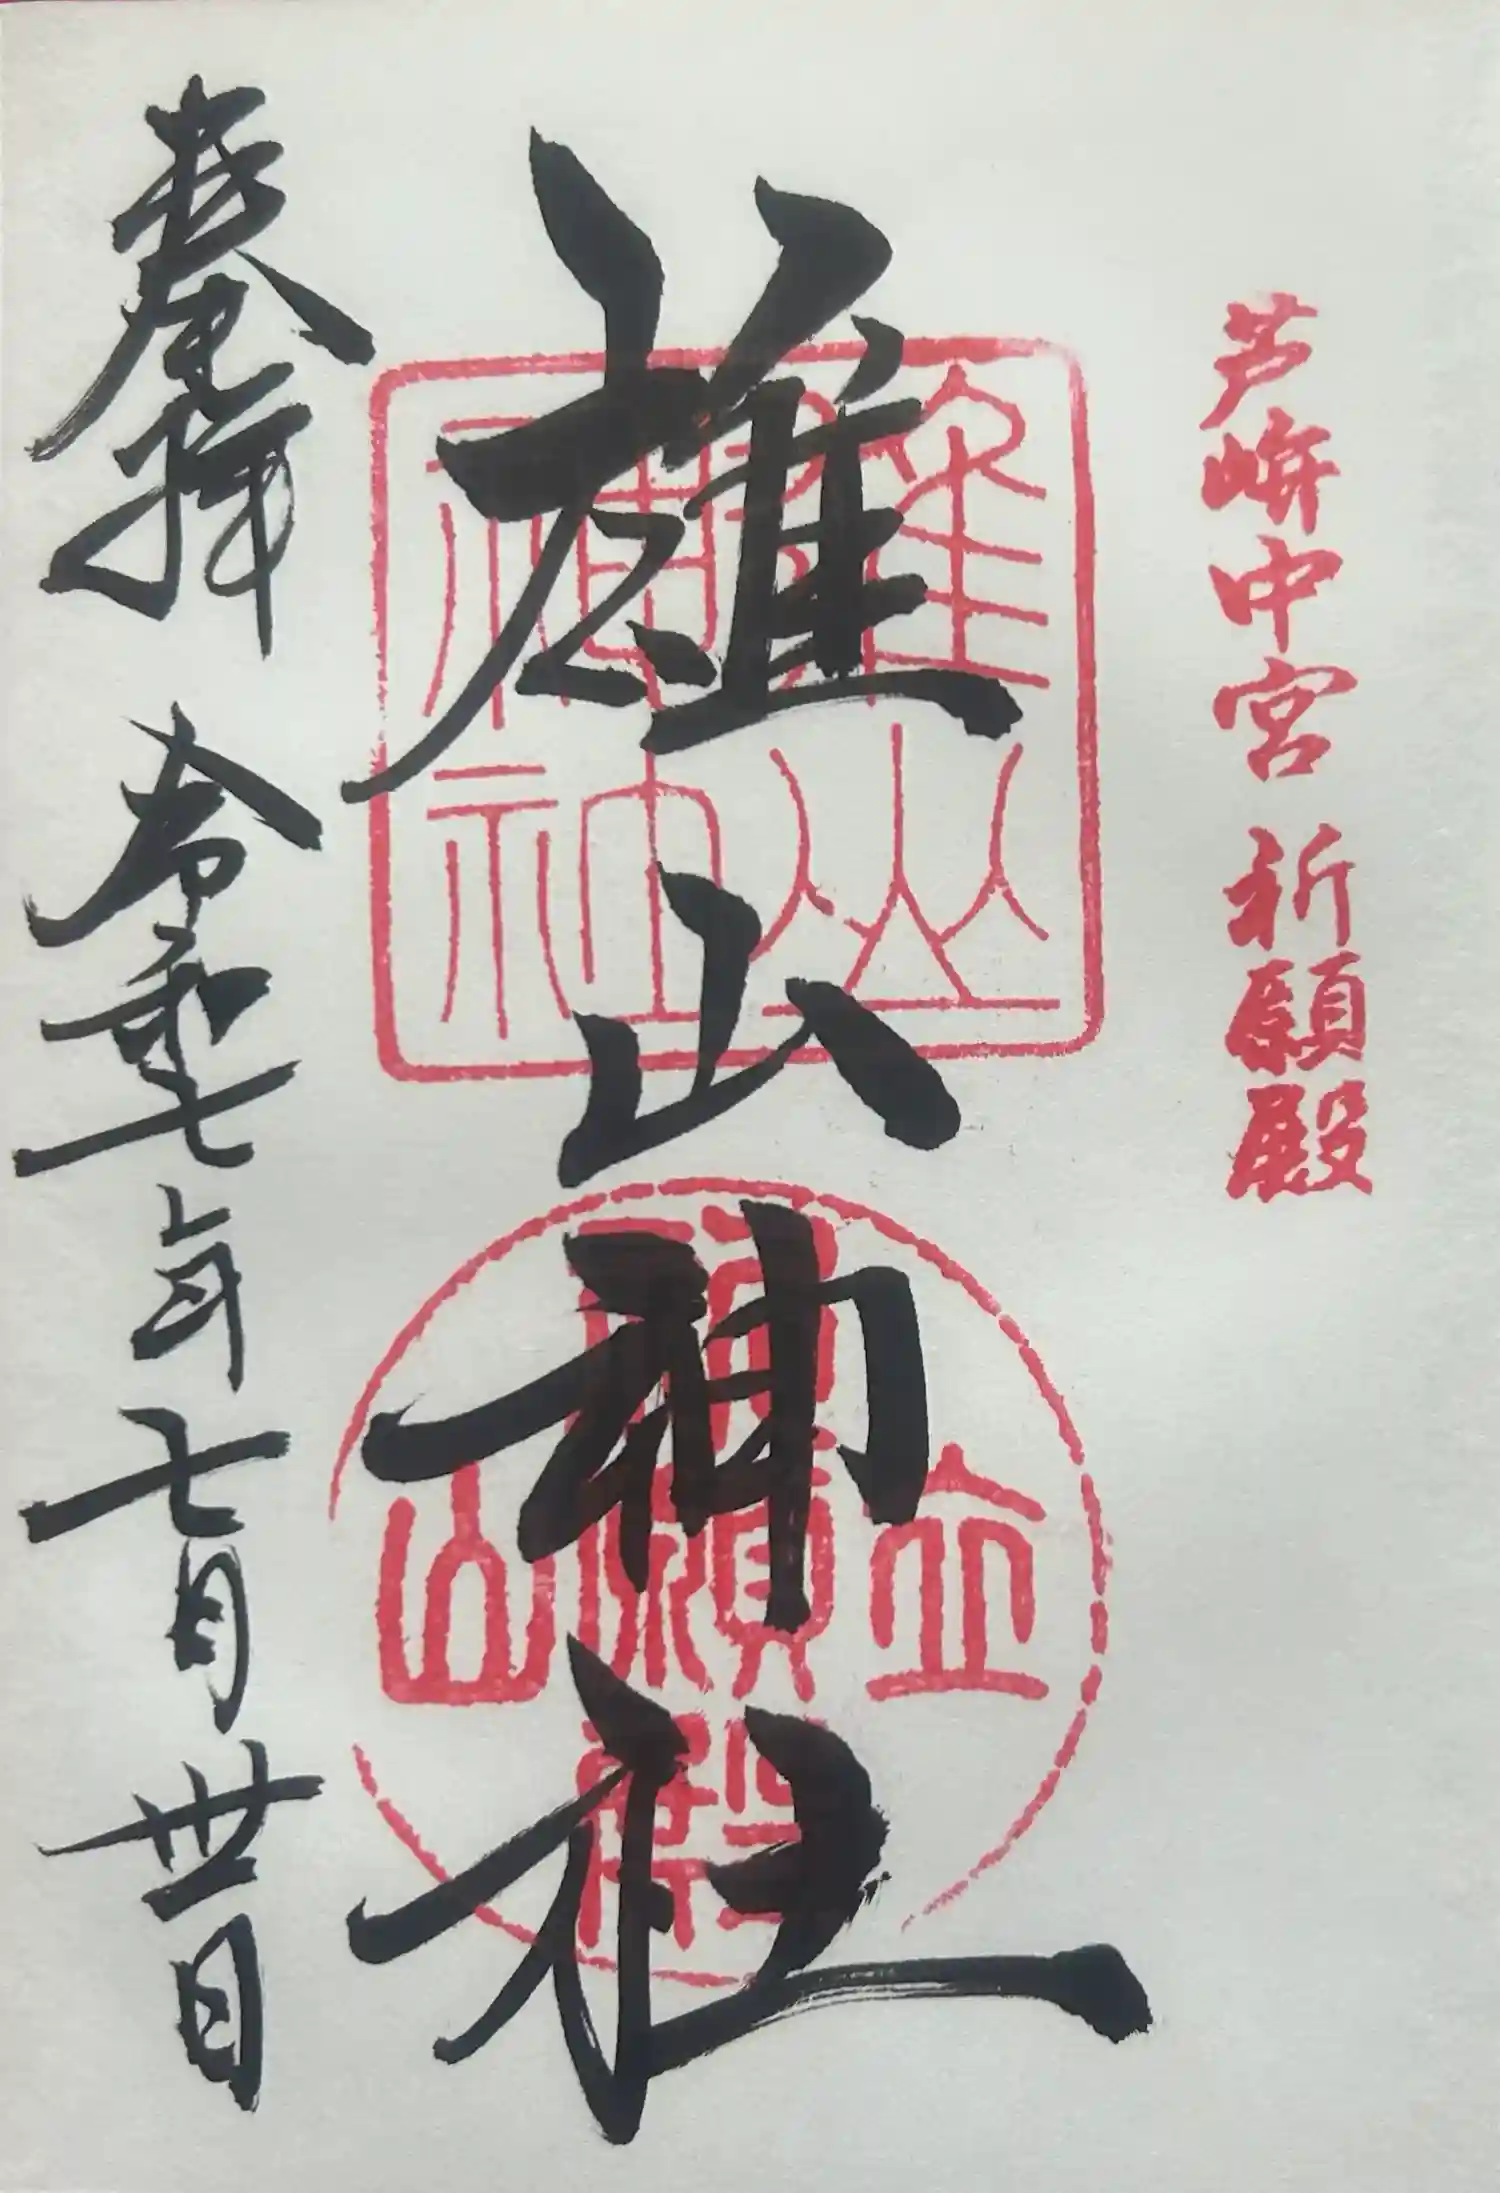 芦峅中宮 祈願殿
雄山神社
奉拝 令和七年七月卅日
雄山
神社
立山
祈願殿